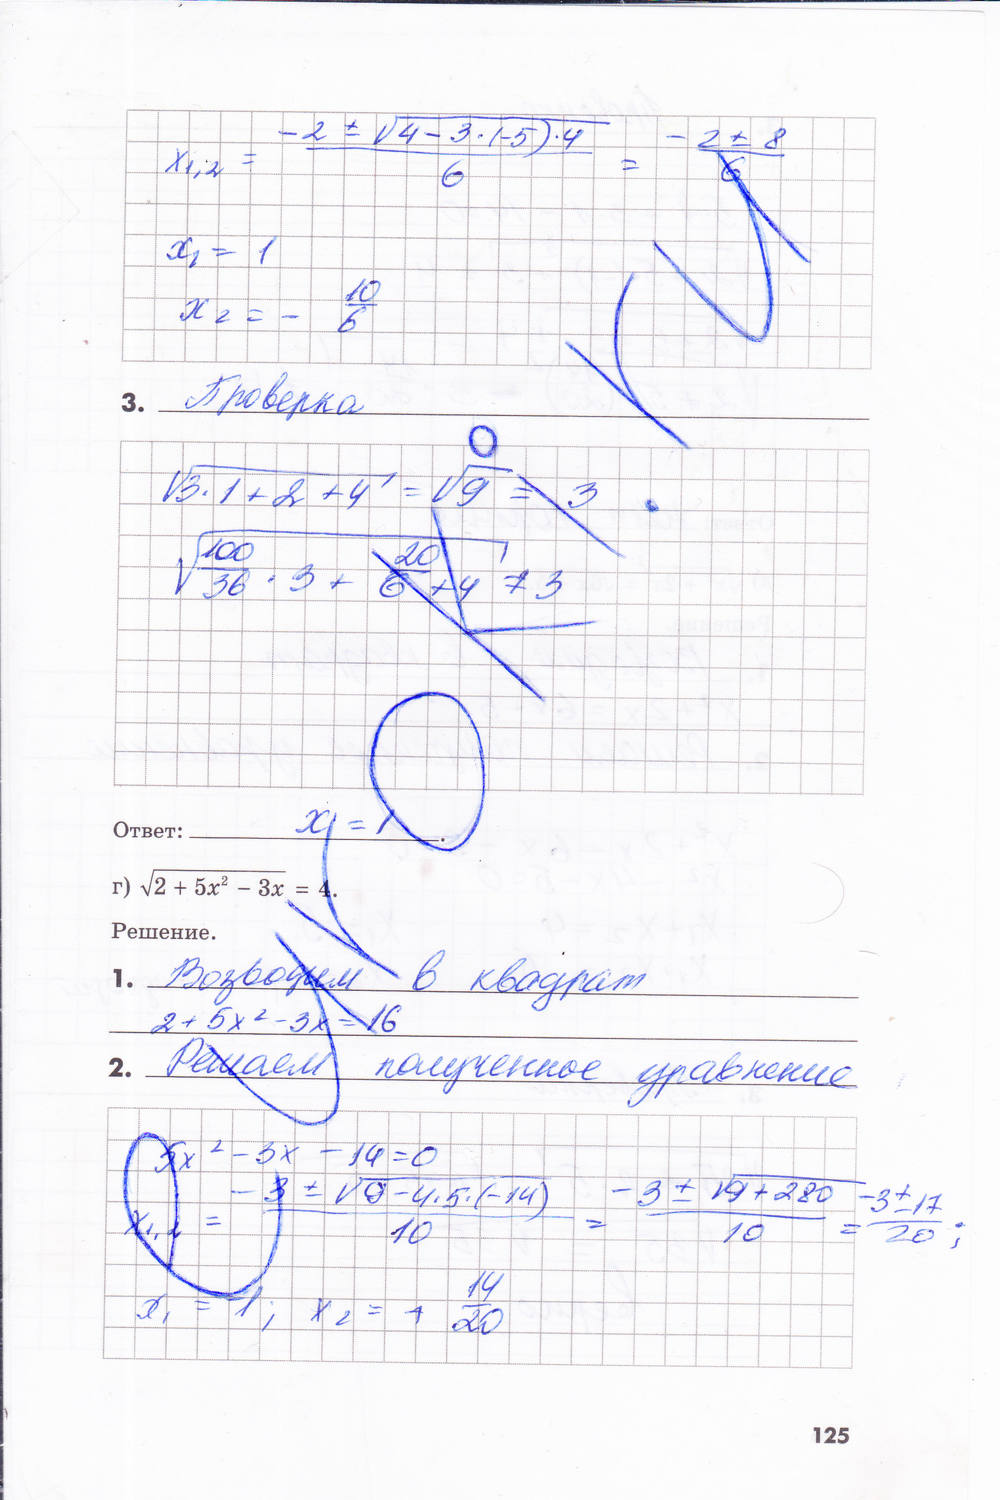 x₁,₂ = (-2 ± √(4 - 3·(-5)·4))/6 = (-2 ± 8)/6
x₁ = 1
x₂ = - 10/6
3. Проверка
√(3·1 + 2 + 4) = √9 = 3
√(100/36 · 3 + 20/6 + 4) ≠ 3
Ответ: x = 1.
г) √(2 + 5x² − 3x) = 4.
Решение.
1. Возводим в квадрат
2 + 5x² - 3x = 16
2. Решаем полученное уравнение
5x² - 3x - 14 = 0
x₁,₂ = (-3 ± √(9 - 4·5·(-14)))/10 = (-3 ± √(9 + 280))/10 = (-3 ± 17)/20;
x₁ = 1; x₂ = + 14/20
125